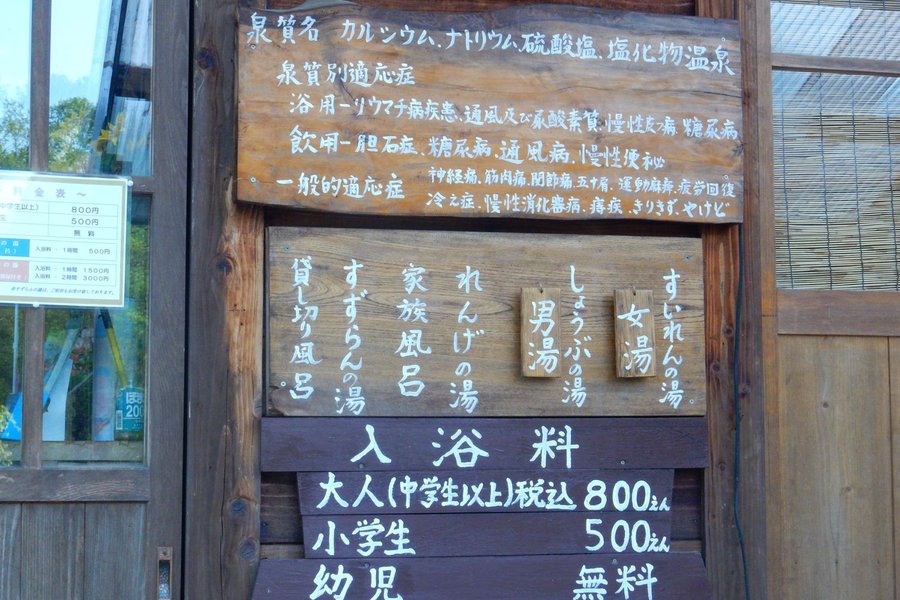 泉質名 カルシウム、ナトリウム、硫酸塩、塩化物温泉
泉質別適応症
浴用ーリウマチ病疾患、通風及び尿酸素質、慢性皮フ病、糖尿病
飲用ー胆石症、糖尿病、通風病、慢性便秘
一般的適応症 神経痛、筋肉痛、関節痛、五十肩、運動麻痺、疲労回復
冷え症、慢性消化器病、痔疾、きりきず、やけど
すいれんの湯
女湯
しょうぶの湯
男湯
れんげの湯
家族風呂
すずらんの湯
貸し切り風呂
入浴料
大人(中学生以上)税込 800えん
小学生 500えん
幼児 無料
料金表~
中学生以上) 800円
生 500円
無料
の湯
入浴料 : 1時間 500円
の湯
入浴料 : 1時間 1500円
入浴料 : 2時間 3000円
200